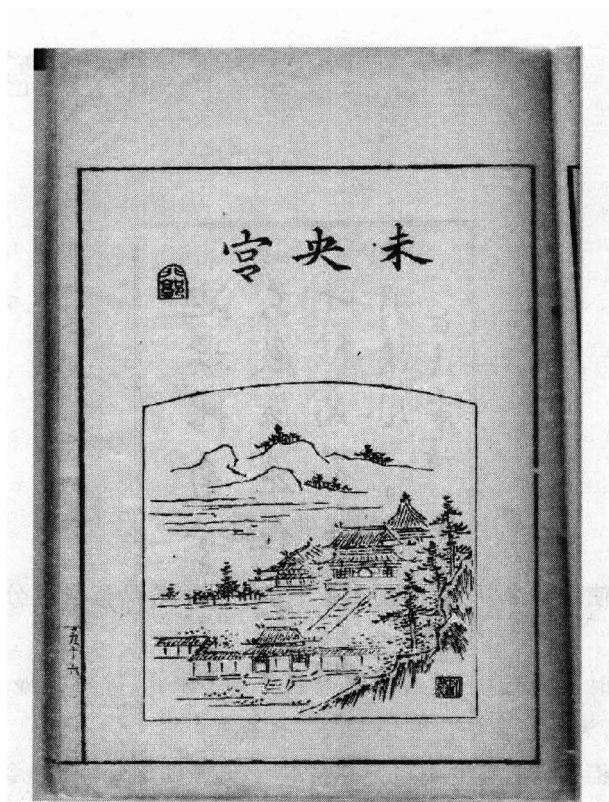 未央宮
九十六